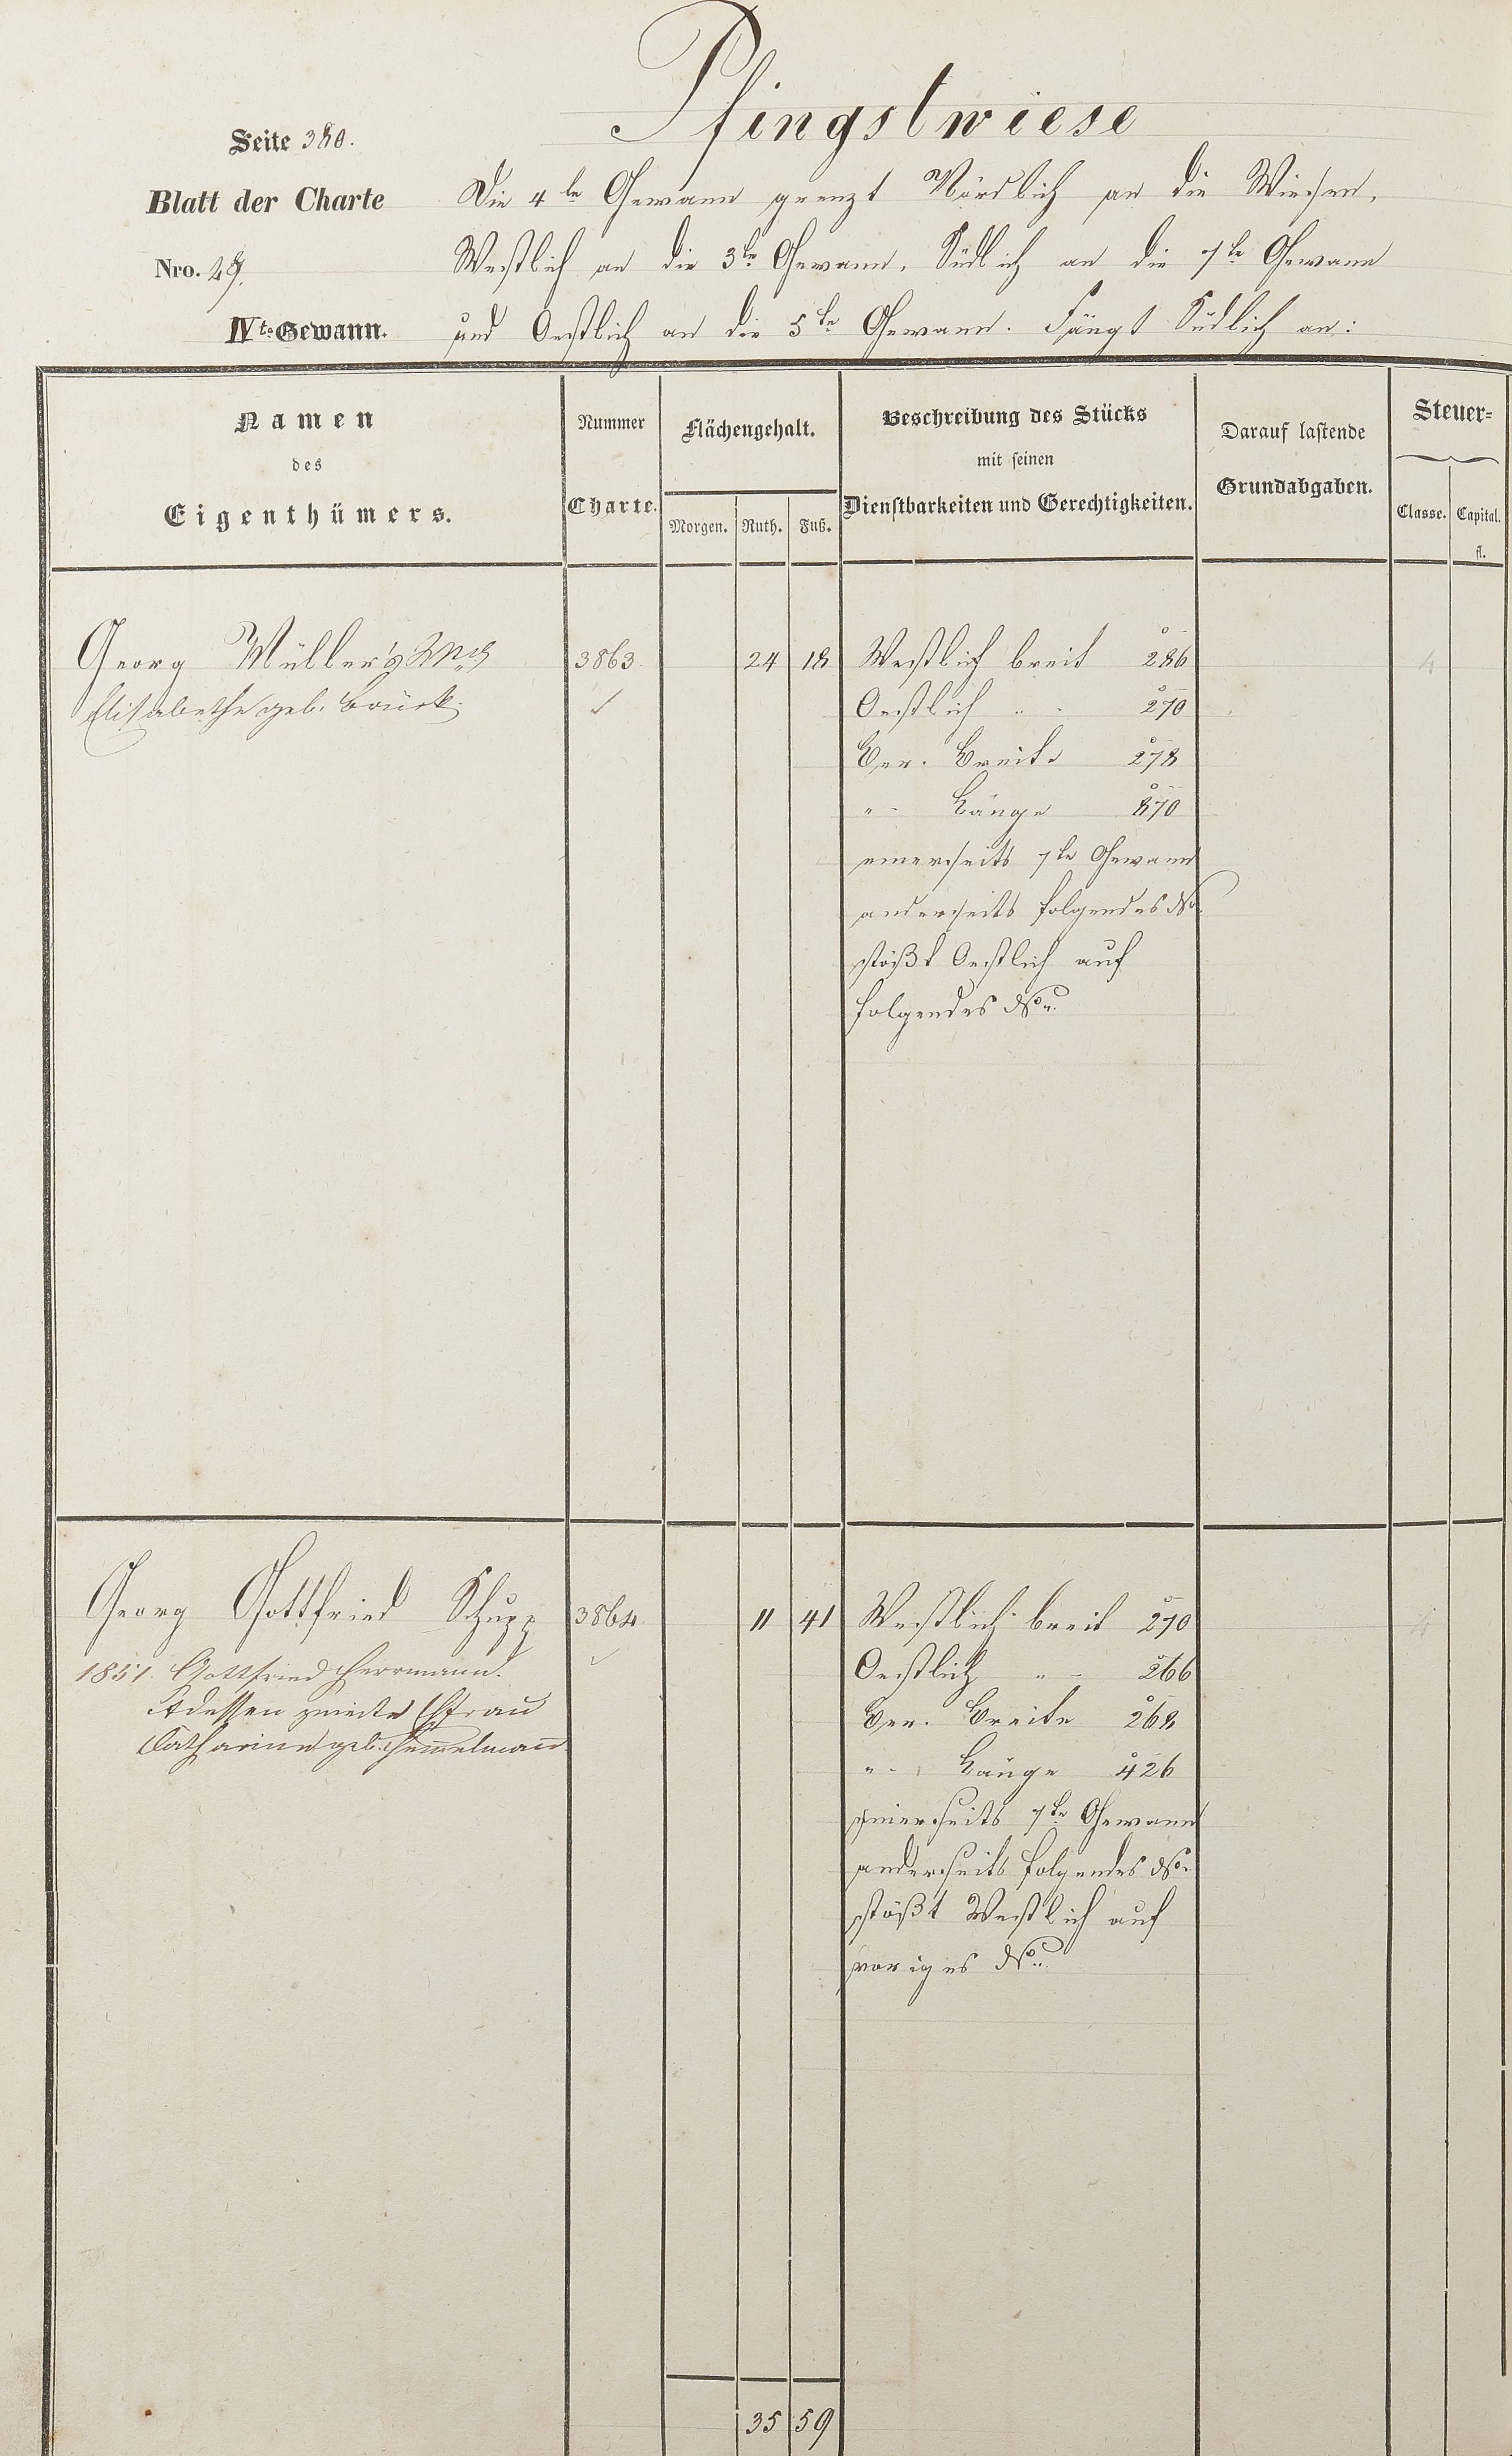 Pfingstwiese
Seite 380.
Blatt der Charte
Nro. 29.
IVte Gewann.
Die 4te Gewann grenzt Nördlich an die Wiesen,
Westlich an die 3te Gewann, Südlich an die 7te Gewann
und Oestlich an die 5te Gewann. Fängt Südlich an:
Namen
des
Eigenthümers.
Nummer
Charte.
Flächengehalt.
Morgen. Ruth. Fuß.
Beschreibung des Stücks
mit seinen
Dienstbarkeiten und Gerechtigkeiten.
Darauf lastende
Grundabgaben.
Steuer=
Classe. Capital.
fl.
Georg Müller's 3863 24 18 Westlich breit 286 4
Elisabethe geb. Brück. Oestlich " - 270
Ver. Breite 278
" - Länge 870
einerseits 7te Gewann
anderseits folgendes No
stößt Oestlich auf
folgendes No.
Georg Gottfried Schupp 3864 11 41 Westlich breit 270 4
1851. Gottfried Herrmann. Oestlich " - 266
dessen zweite Ehfrau Ver. Breite 268
Catharina geb. Hemelmann " - Länge 426
einerseits 7te Gewann
anderseits folgendes No.
stößt Westlich auf
voriges No.
35 59